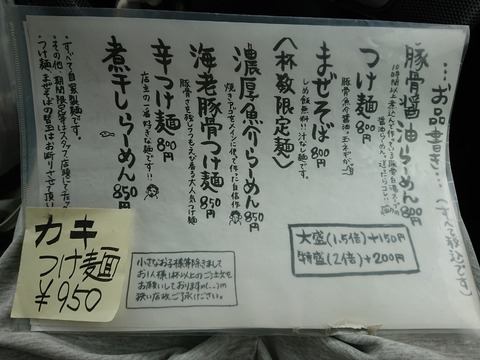 …お品書き…(すべて税込です)
豚骨醤油らーめん 800円
つけ麺 800円
まぜそば 800円
しめ飯無料!!汁なし麺です
(杯数限定麺)
濃厚魚介らーめん 850円
焼きアゴをメインに使て作った自信作
海老豚骨つけ麺 850円
辛つけ麺 800円
店主の一番好きな麺です!!
煮干しらーめん 850円
・すべて自家製麺です。
大盛(1.5倍)+150円
特盛(2倍)+200円
小さなお子様等除きまして
お1人様1杯以上のご注文を
お願いしております m(__)m
狭い店故ご了承ください。
カキ
つけ麺
¥950